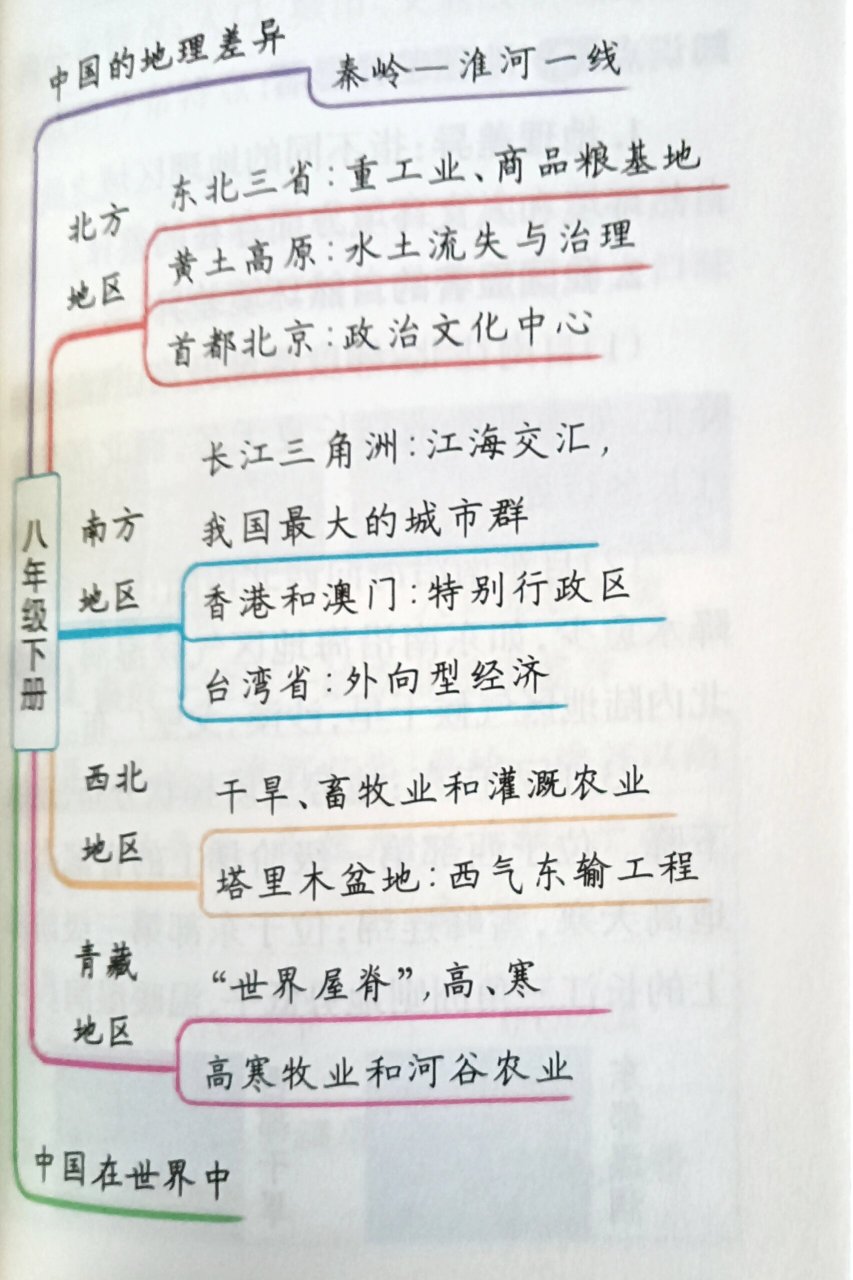 中国的地理差异
秦岭—淮河一线
北方
地区
东北三省：重工业、商品粮基地
黄土高原：水土流失与治理
首都北京：政治文化中心
八年级下册
南方
地区
长江三角洲：江海交汇，
我国最大的城市群
香港和澳门：特别行政区
台湾省：外向型经济
西北
地区
干旱、畜牧业和灌溉农业
塔里木盆地：西气东输工程
青藏
地区
“世界屋脊”，高、寒
高寒牧业和河谷农业
中国在世界中